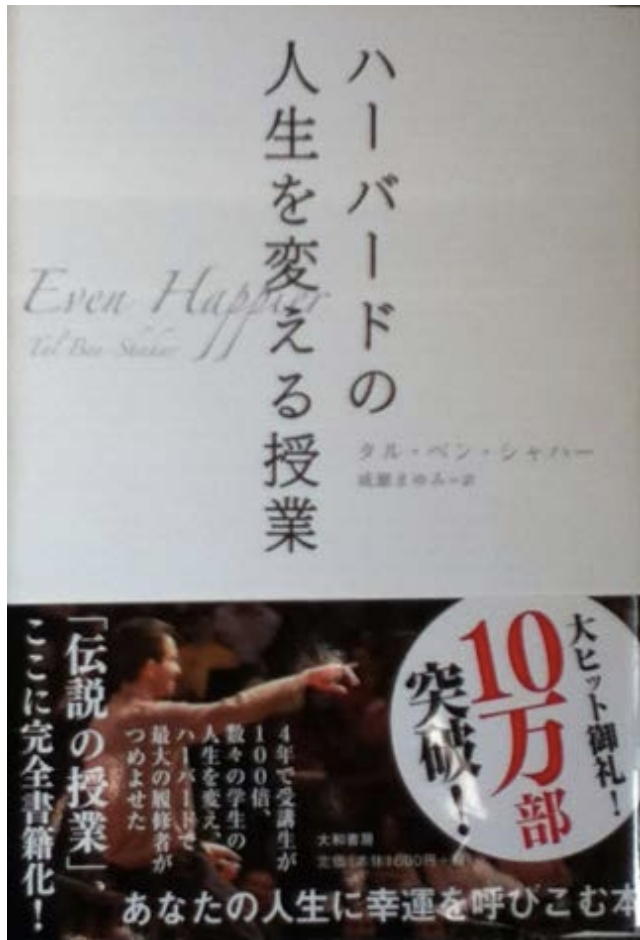 ハーバードの
人生を変える授業
Even Happier
Tal Ben-Shahar
タル・ベン・シャハー
成瀬まゆみ=訳
大ヒット御礼!
10万部
突破!
4年で受講生が
100倍、
数々の学生の
人生を変え、
ハーバードで
最大の履修者が
つめよせた
「伝説の授業」、
ここに完全書籍化!
大和書房
定価(本体1600円+税)
あなたの人生に幸運を呼びこむ本